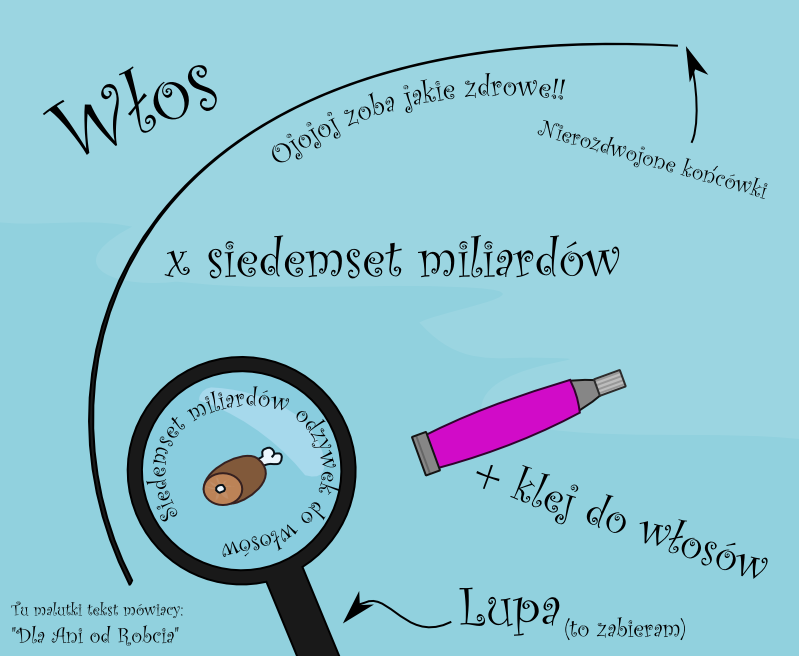 Włos
Ojojoj zoba jakie zdrowe!!
Nierozdwojone końcówki
x siedemset miliardów
Siedemset miliardów odzywek do włosów
+ klej do włosów
Lupa (to zabieram)
Tu malutki tekst mówiacy:
"Dla Ani od Robcia"